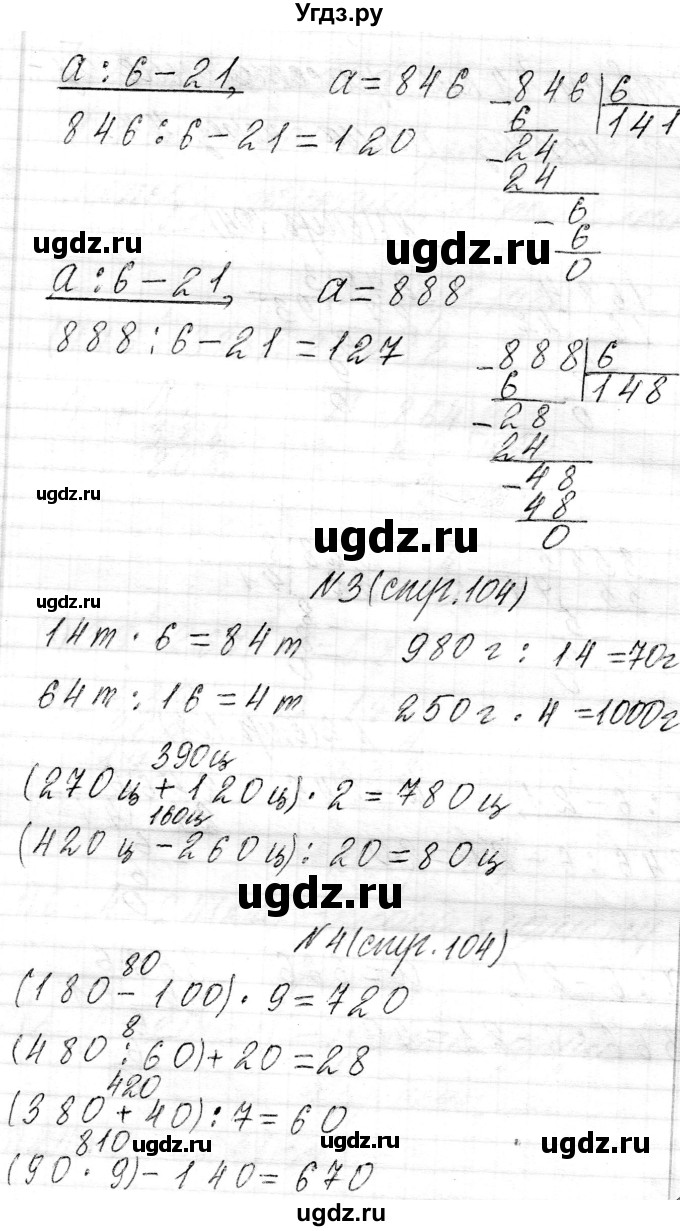 Угдз.ру
a : 6 - 21, a = 846
846 : 6 - 21 = 120
- 846 | 6
6 141
- 24
24
- 6
6
0
ugdz.ru ugdz.ru
a : 6 - 21, a = 888
888 : 6 - 21 = 127
- 888 | 6
6 148
- 28
24
- 48
48
0
ugdz.ru
ugdz.ru
№3 (стр. 104)
ugdz.ru
14т · 6 = 84т 980г : 14 = 70г
64т : 16 = 4т 250г · 4 = 1000г
390ц
(270ц + 120ц) · 2 = 780ц
160ц
(420ц - 260ц) : 20 = 80ц
ugdz.ru
№4 (стр. 104)
80
(180 - 100) · 9 = 720
8
(480 : 60) + 20 = 28
420
(380 + 40) : 7 = 60
810 ugdz.ru ugdz.ru ugdz.ru
(90 · 9) - 140 = 670
ugdz.ru